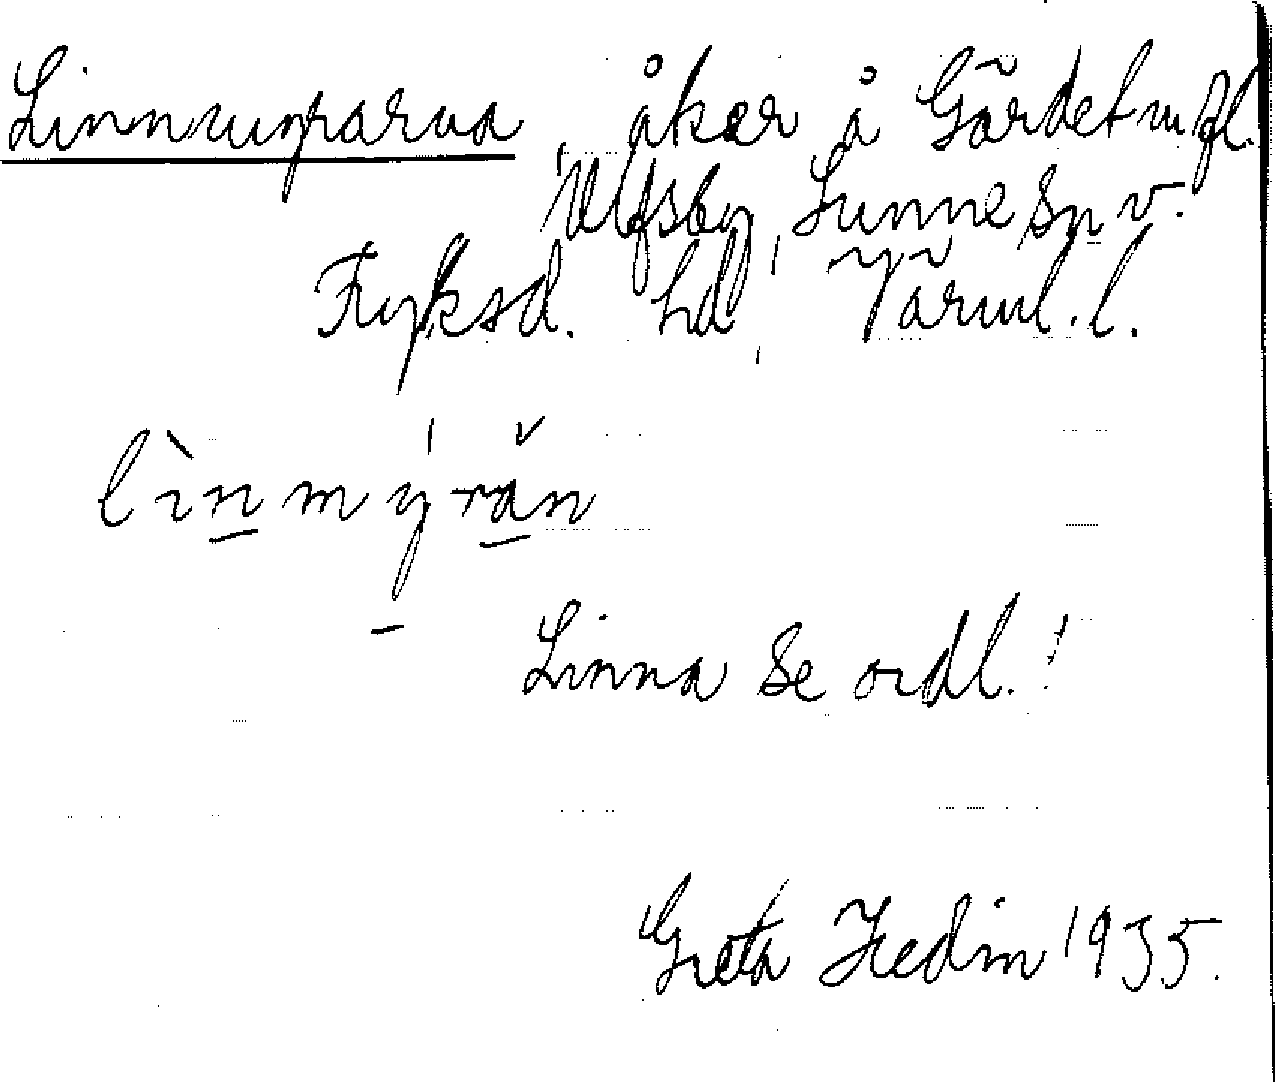 Linnmyrarna, åker å Gärdet m fl.
Ulfsby, Sunne sn v.
Fryksd. hd, Värml. l.
lìnmýrän
Linna se ordl.!
Greta Hedin 1935.